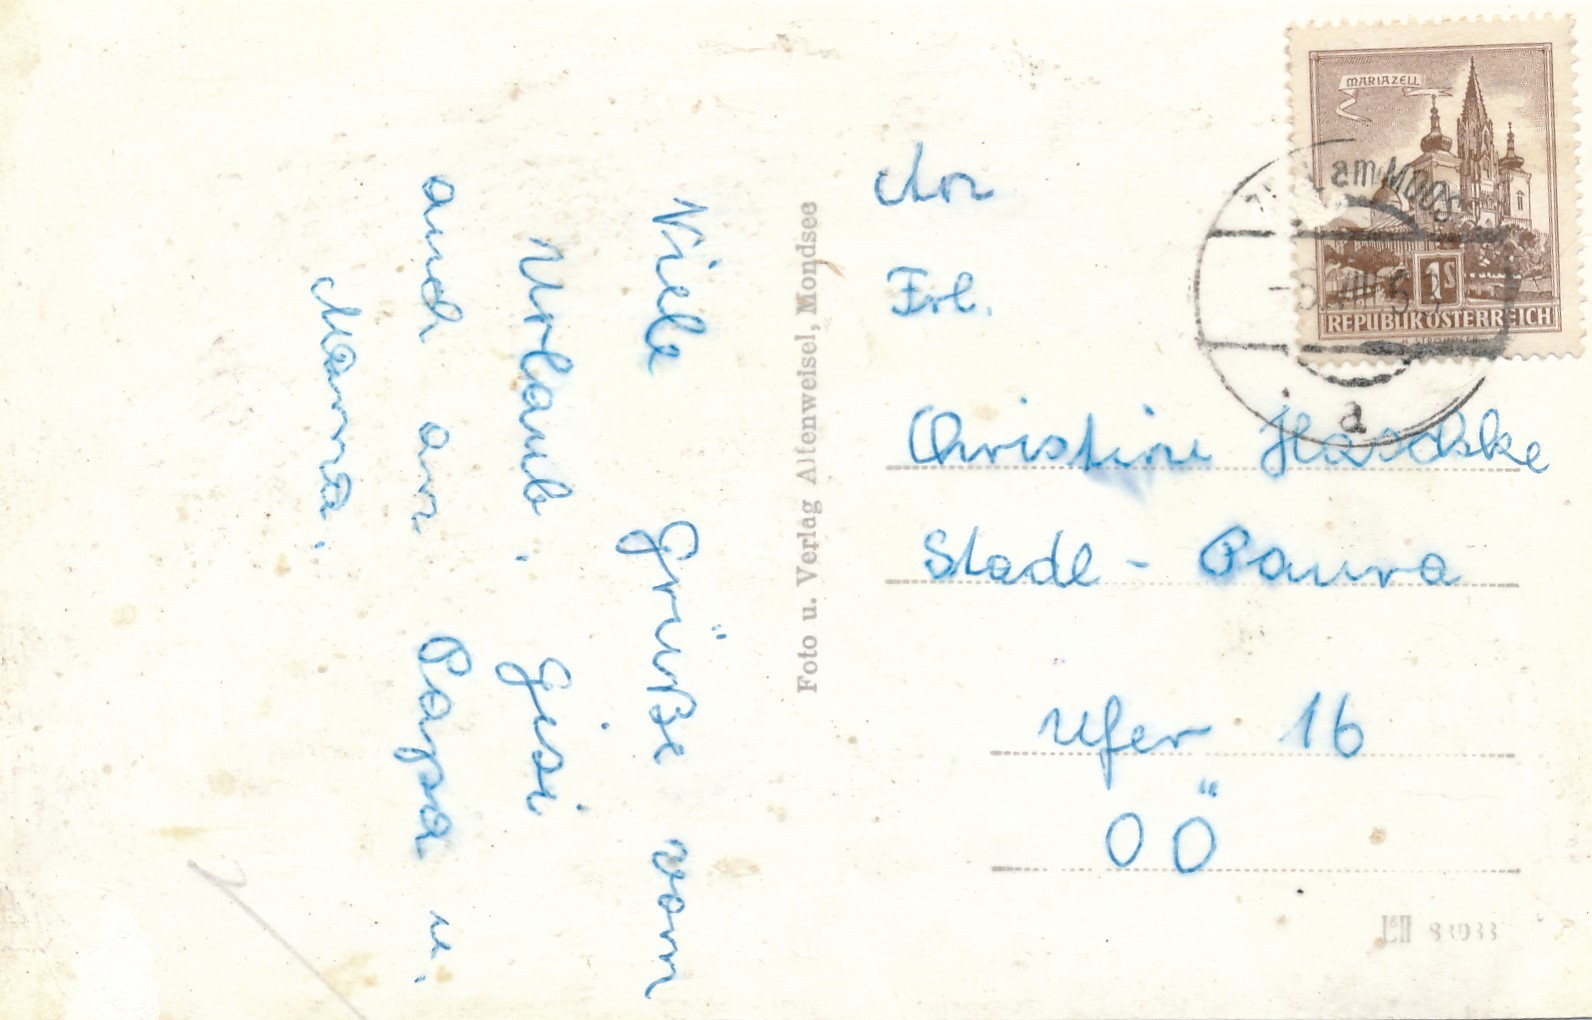 Viele Grüße vom
Urlaub. Gisi
auch an Papa u.
Mama.
Foto u. Verlag Altenweisel, Mondsee
An
Frl.
Christine Haschke
Stadl - Paura
Ufer 16
OÖ
MARIAZELL
1S
REPUBLIK ÖSTERREICH
am Moos
VIII
a